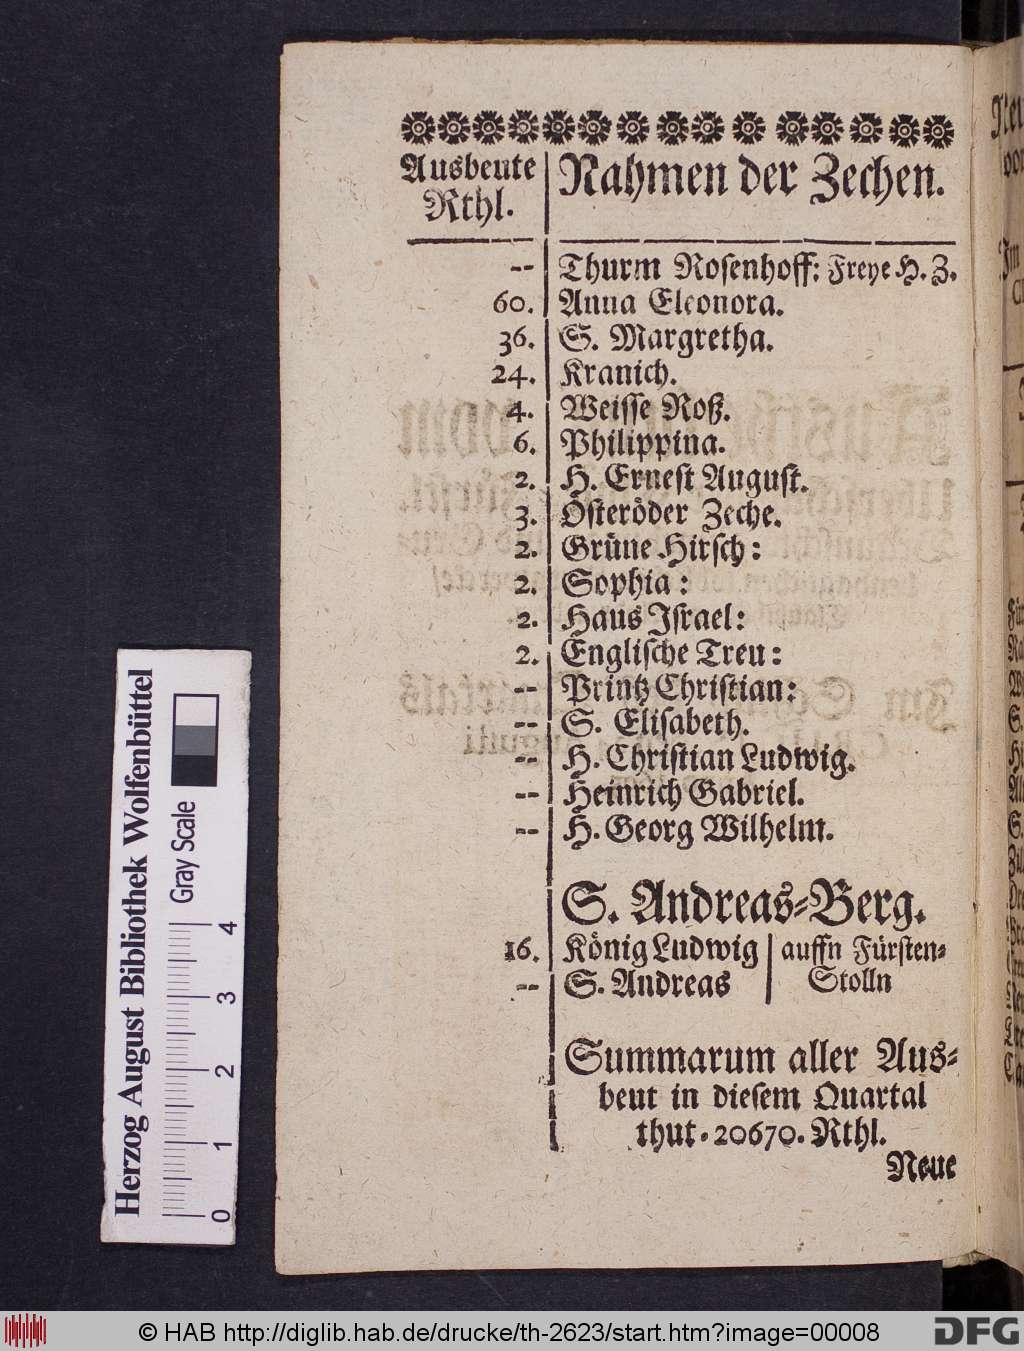 Ausbeute Rthl. | Nahmen der Zechen.
-- Thurm Rosenhoff: Freye H. Z.
60. Anna Eleonora.
36. S. Margretha.
24. Kranich.
4. Weisse Roß.
6. Philippina.
2. H. Ernest August.
3. Osteröder Zeche.
2. Grüne Hirsch:
2. Sophia:
2. Haus Israel:
2. Englische Treu:
-- Printz Christian:
-- S. Elisabeth.
-- H. Christian Ludwig.
-- Heinrich Gabriel.
-- H. Georg Wilhelm.
S. Andreas-Berg.
16. König Ludwig | auffn Fürsten-
-- S. Andreas | Stolln
Summarum aller Aus-
beut in diesem Quartal
thut. 20670. Rthl.
Neue
Herzog August Bibliothek Wolfenbüttel
Gray Scale
0 1 2 3 4
© HAB http://diglib.hab.de/drucke/th-2623/start.htm?image=00008
DFG